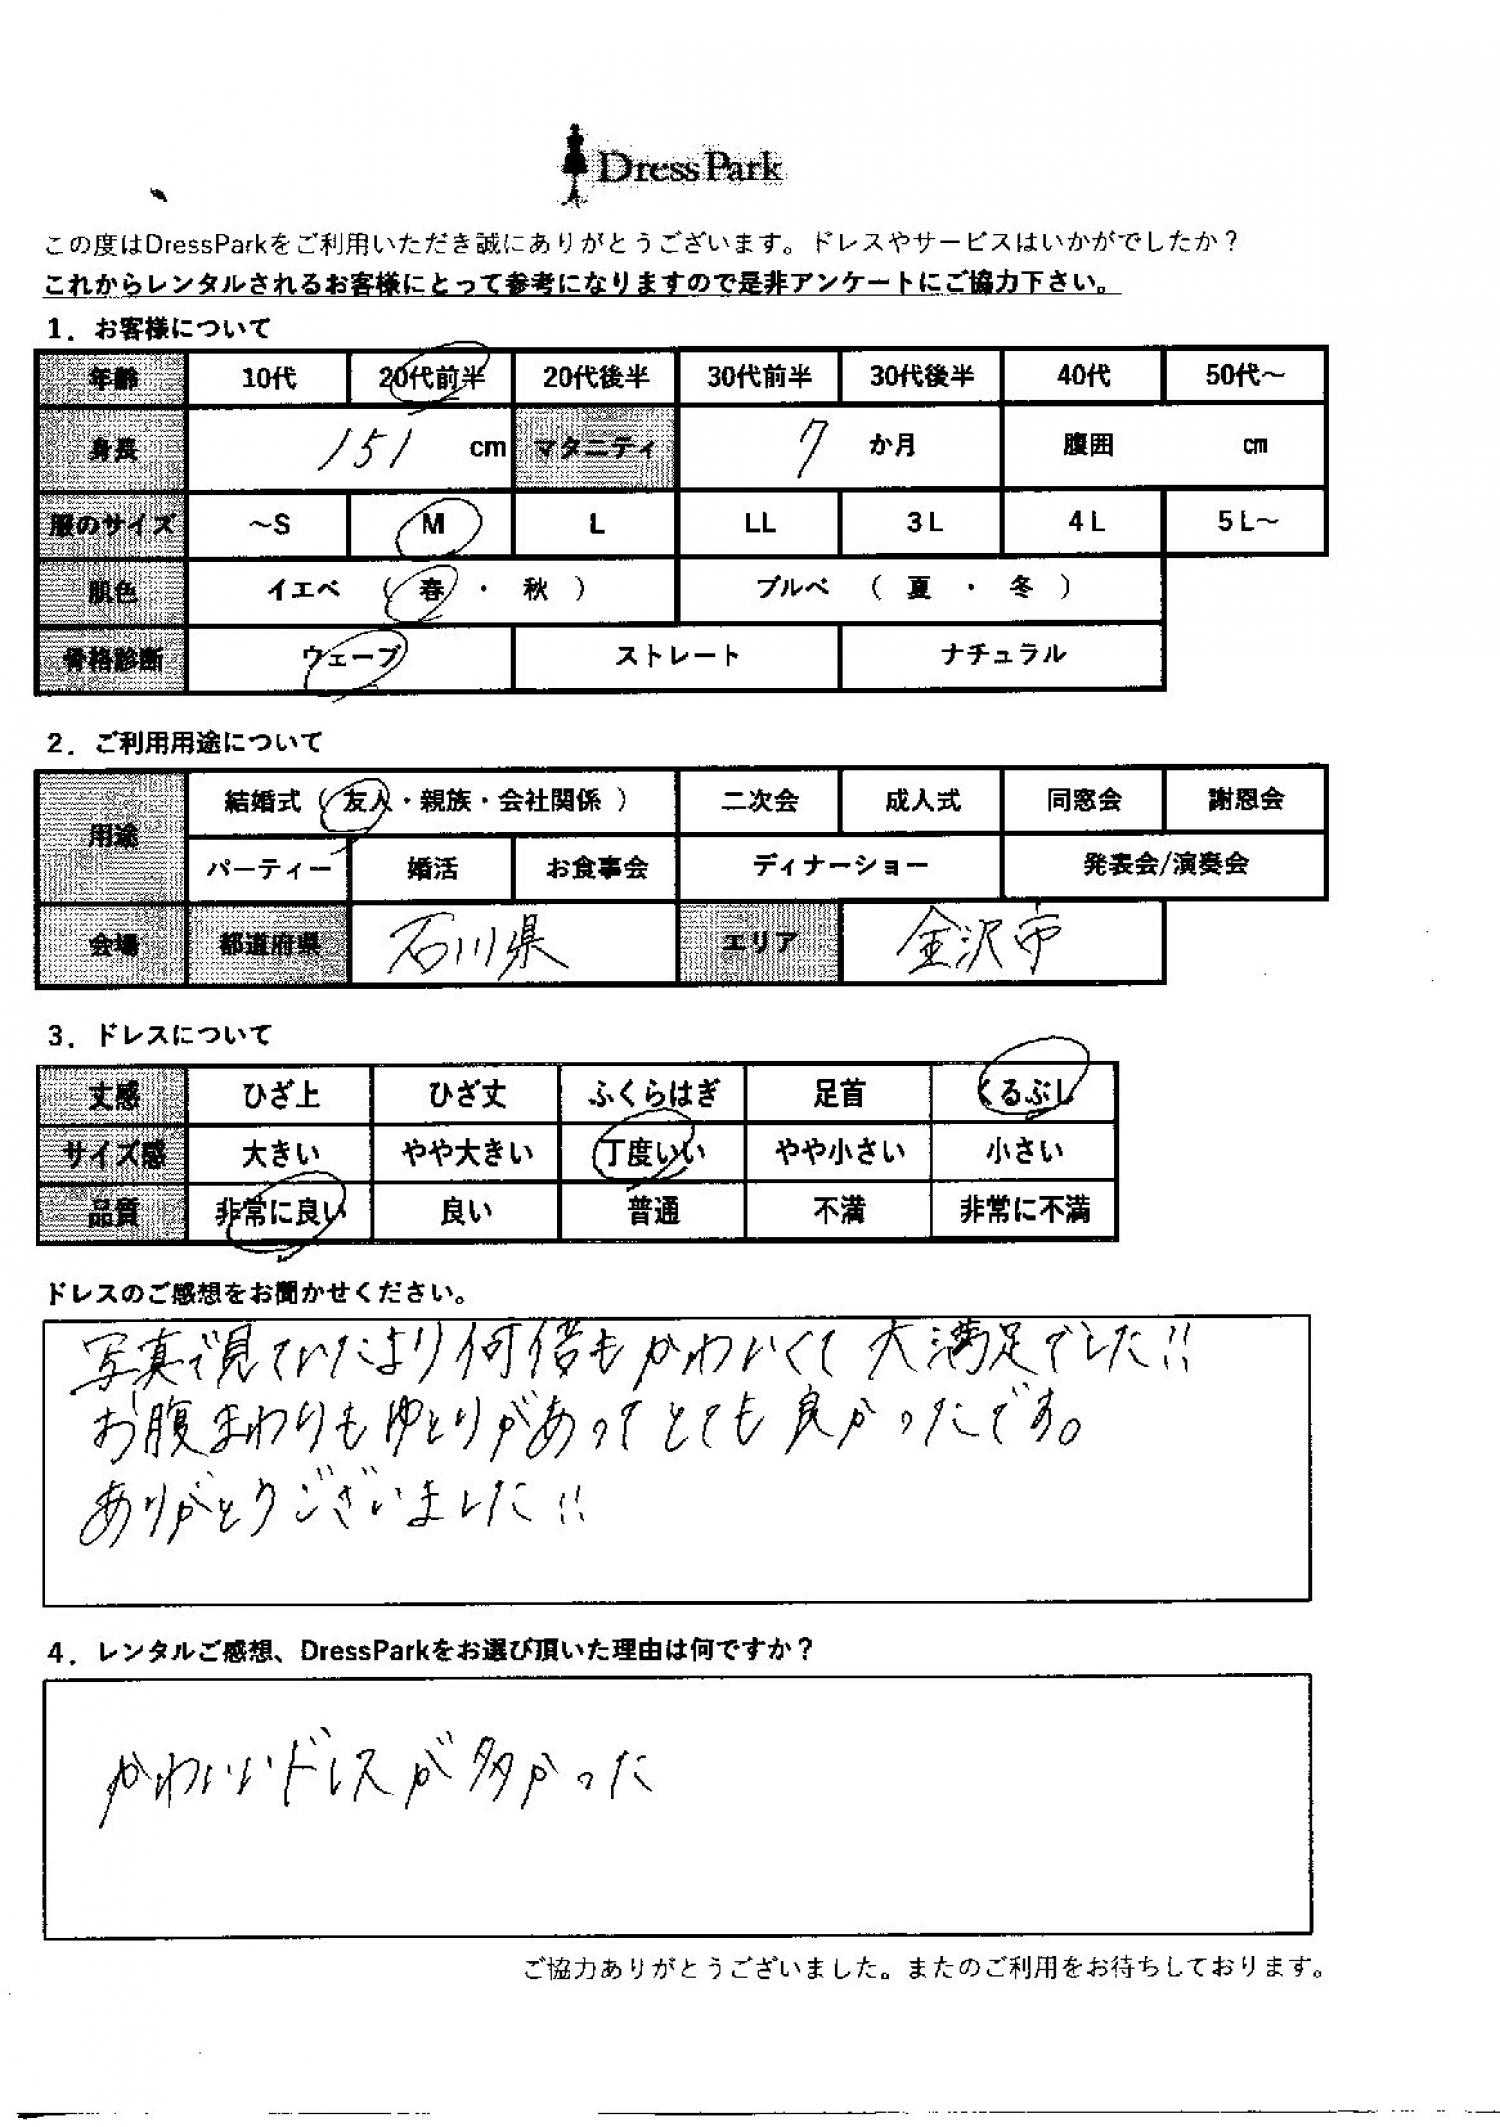 DressPark
この度はDressParkをご利用いただき誠にありがとうございます。ドレスやサービスはいかがでしたか？
これからレンタルされるお客様にとって参考になりますので是非アンケートにご協力下さい。
1．お客様について
年齢 10代 20代前半 20代後半 30代前半 30代後半 40代 50代～
身長 151 cm マタニティ 7 か月 腹囲 cm
服のサイズ ～S M L LL 3L 4L 5L～
肌色 イエベ （ 春 ・ 秋 ） ブルベ （ 夏 ・ 冬 ）
骨格診断 ウェーブ ストレート ナチュラル
2．ご利用用途について
用途 結婚式（ 友人・親族・会社関係 ） 二次会 成人式 同窓会 謝恩会
パーティー 婚活 お食事会 ディナーショー 発表会/演奏会
会場 都道府県 石川県 エリア 金沢市
3．ドレスについて
丈感 ひざ上 ひざ丈 ふくらはぎ 足首 くるぶし
サイズ感 大きい やや大きい 丁度いい やや小さい 小さい
品質 非常に良い 良い 普通 不満 非常に不満
ドレスのご感想をお聞かせください。
写真で見ていたより何倍もかわいくて大満足でした!!
お腹まわりもゆとりがあってとても良かったです。
ありがとうございました!!
4．レンタルご感想、DressParkをお選び頂いた理由は何ですか？
かわいいドレスが多かった
ご協力ありがとうございました。またのご利用をお待ちしております。